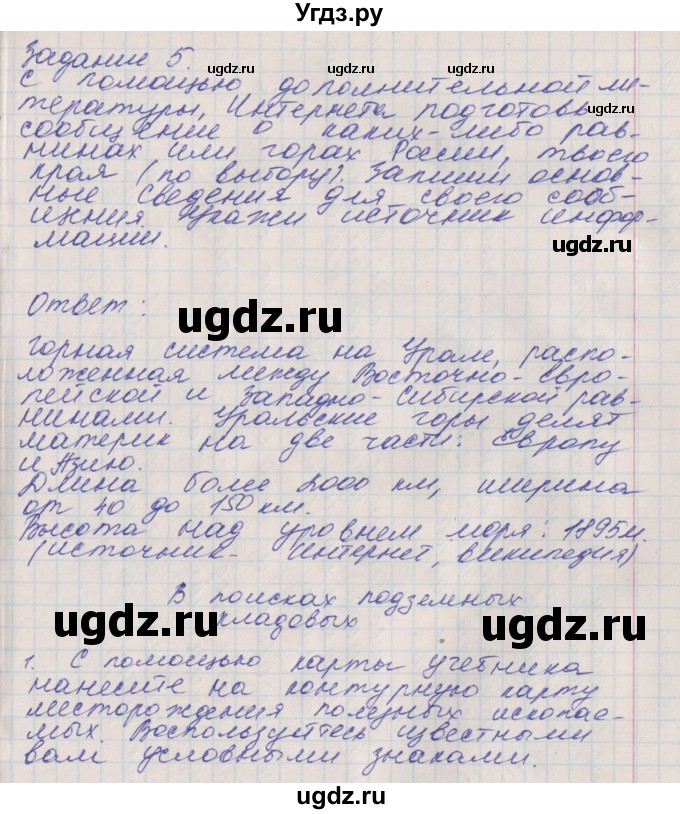 Угдз.ру
Задание 5.
С помощью дополнительной ли-
тературы, Интернета подготовь
сообщение о каких-либо рав-
нинах или горах России, твоего
края (по выбору). Запиши основ-
ные сведения для своего сооб-
щения. Укажи источник инфор-
мации.
Ответ:
Горная система на Урале, распо-
ложенная между Восточно-Евро-
пейской и Западно-Сибирской рав-
нинами. Уральские горы делят
материк на две части: Европу
и Азию.
Длина более 2000 км, ширина
от 40 до 150 км.
Высота над уровнем моря: 1895м.
(источник- Интернет, википедия)
В поисках подземных
кладовых
1. С помощью карты учебника
нанесите на контурную карту
месторождения полезных ископае-
мых. Воспользуйтесь известными
вам условными знаками.
ugdz.ru
ugdz.ru
ugdz.ru
ugdz.ru
ugdz.ru
ugdz.ru
ugdz.ru
ugdz.ru
ugdz.ru
ugdz.ru
ugdz.ru
ugdz.ru